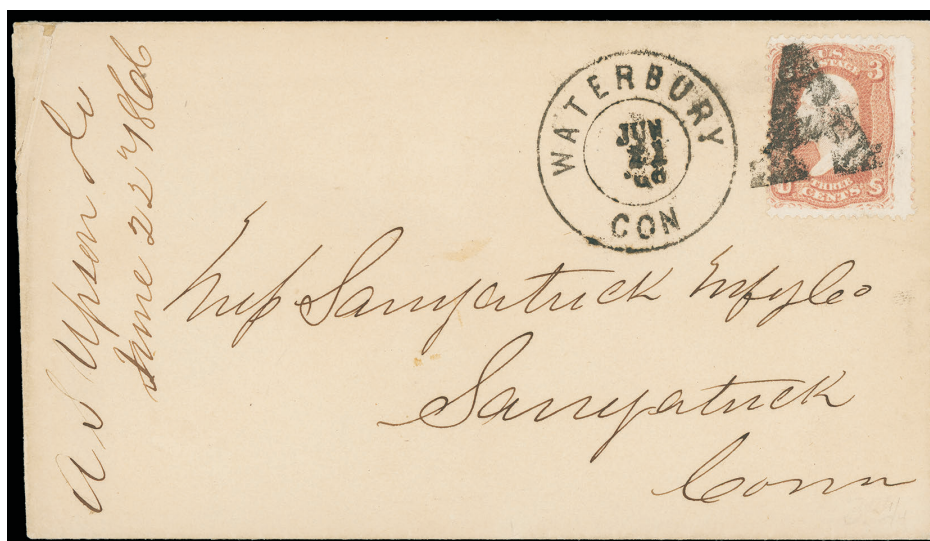 A S Upson Co
June 22" 1866
WATERBURY
JUN
21
'66
CON
U.S.
POSTAGE
3
THREE
CENTS
U S
Saugatuck Mfg Co
Saugatuck
Conn